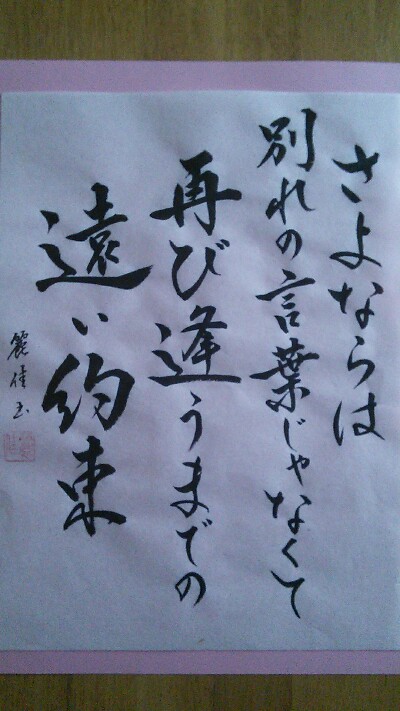 さよならは
別れの言葉じゃなくて
再び逢うまでの
遠い約束
麗佳書